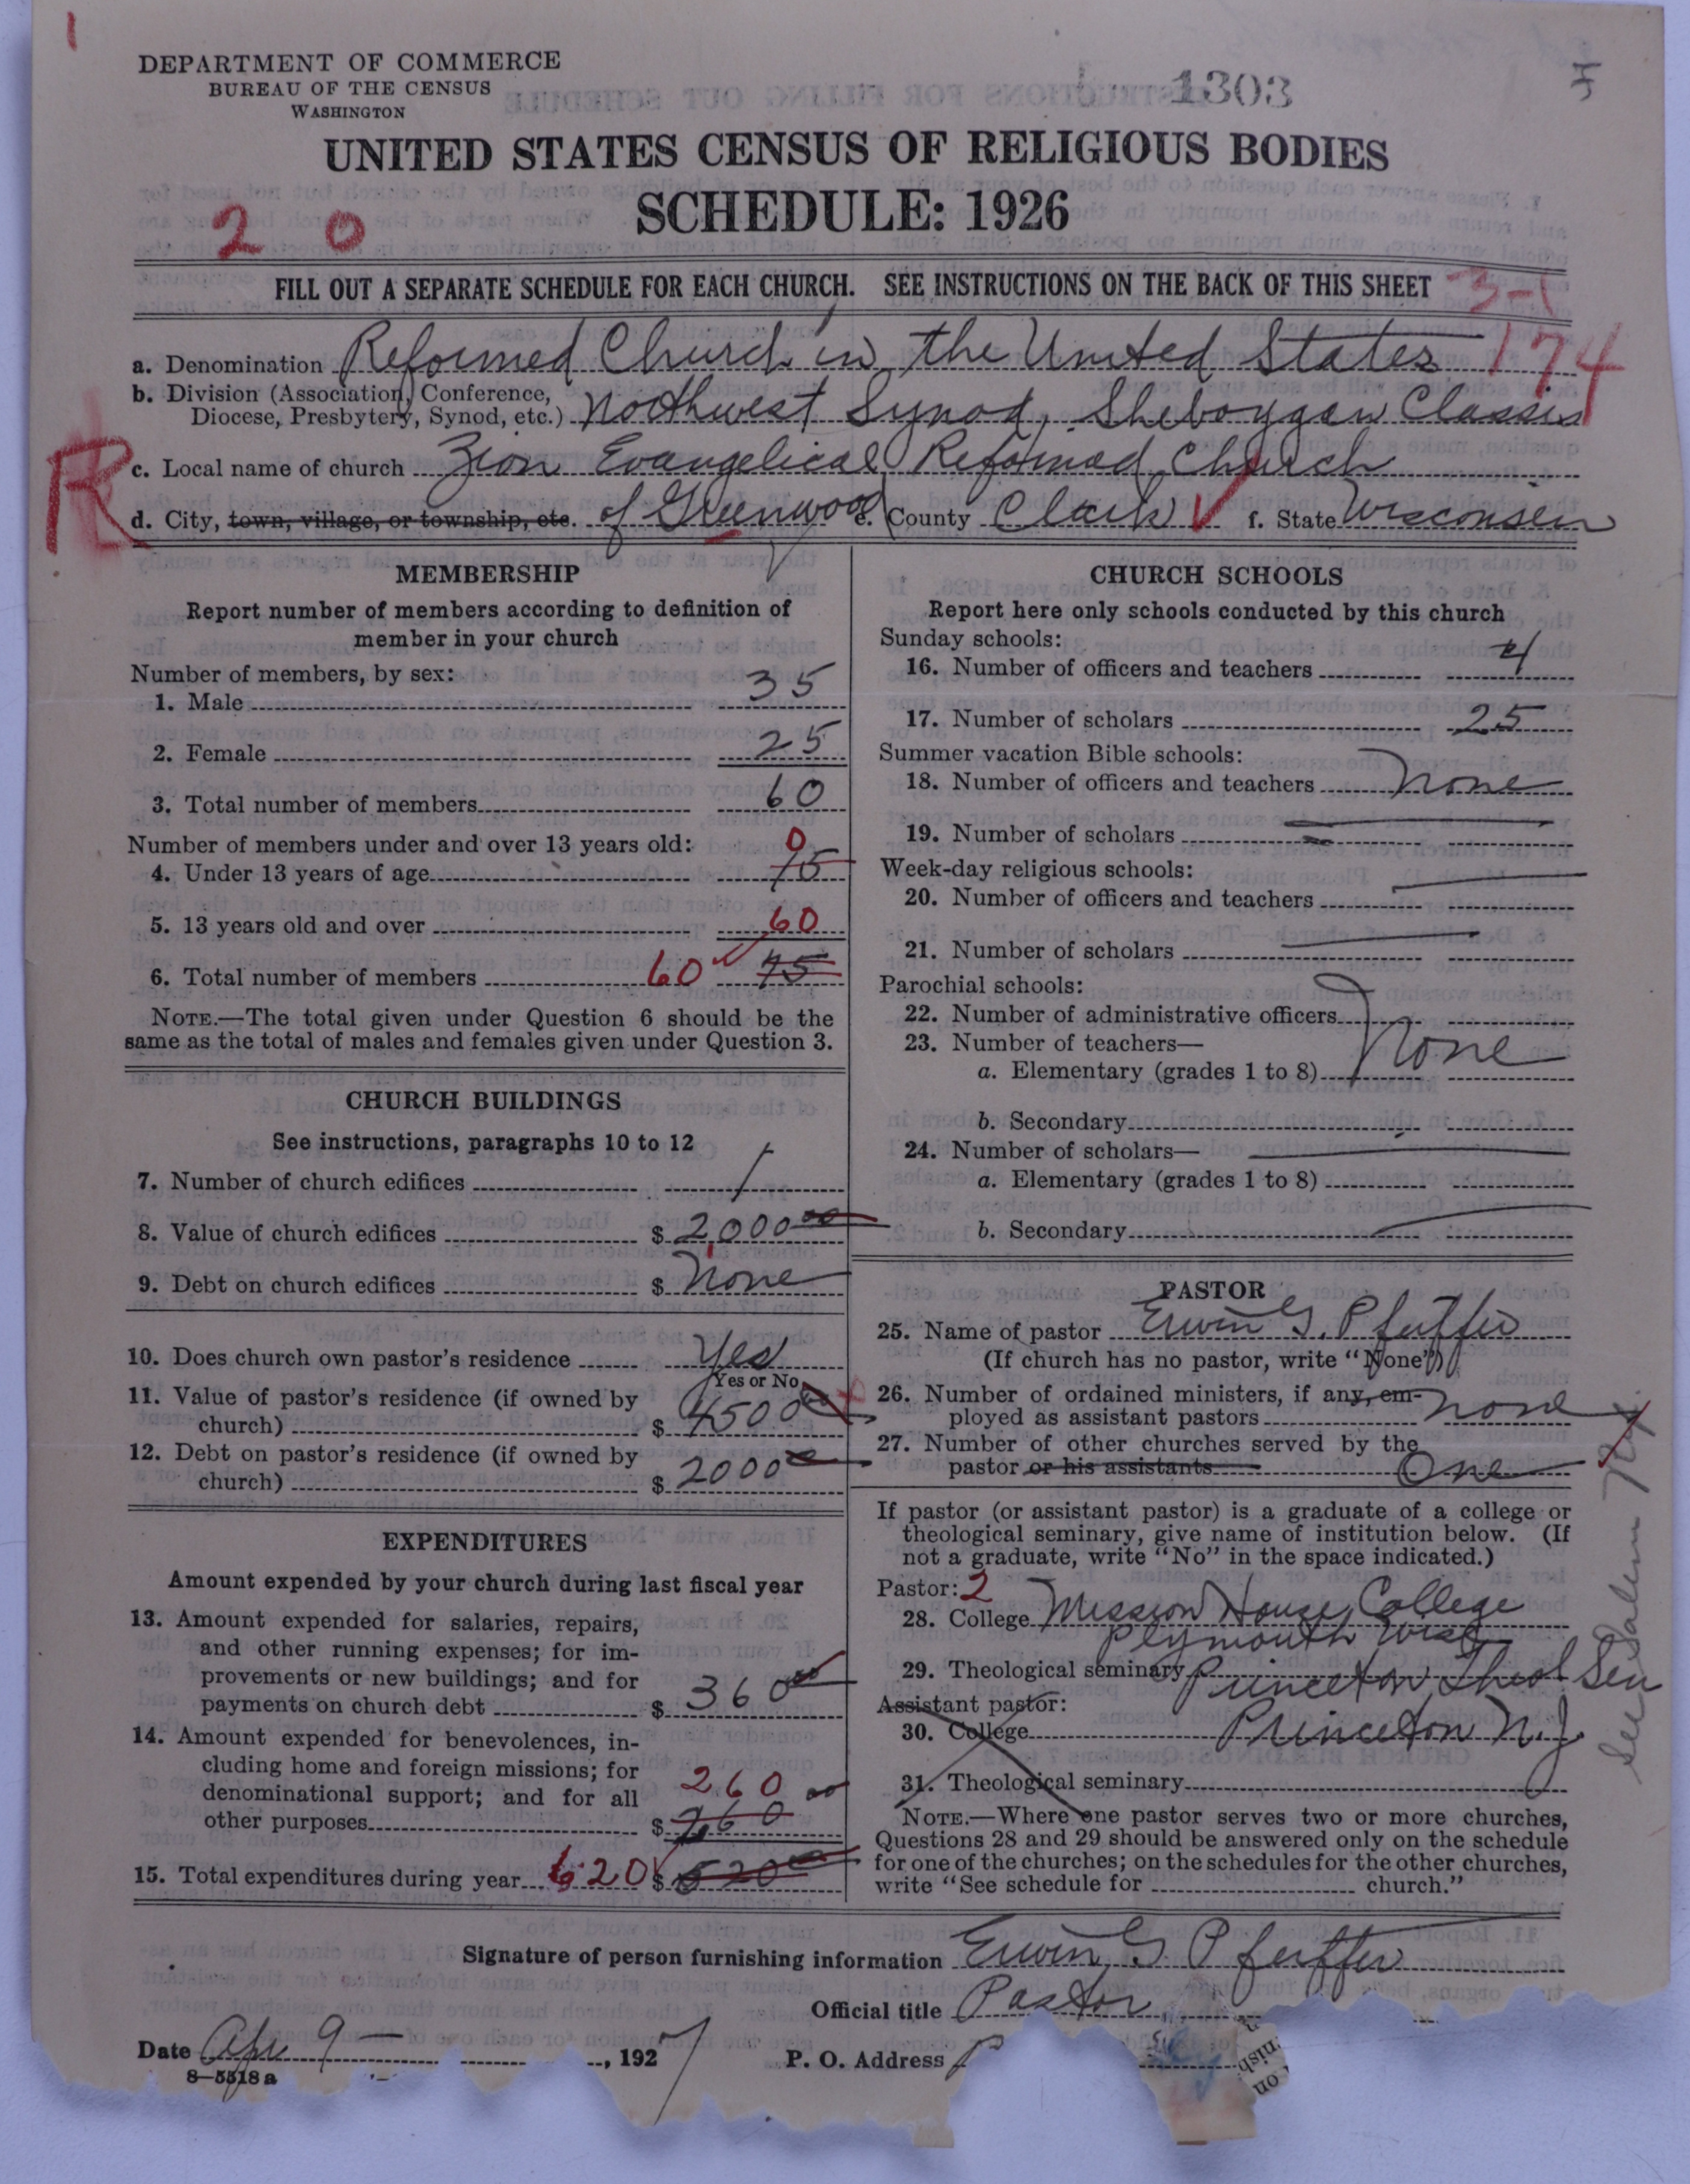 1
DEPARTMENT OF COMMERCE
BUREAU OF THE CENSUS
WASHINGTON
1303
UNITED STATES CENSUS OF RELIGIOUS BODIES
SCHEDULE: 1926
2 0
FILL OUT A SEPARATE SCHEDULE FOR EACH CHURCH. SEE INSTRUCTIONS ON THE BACK OF THIS SHEET
3-1
174
a. Denomination Reformed Church in the United States
b. Division (Association, Conference,
Diocese, Presbytery, Synod, etc.) Northwest Synod, Sheboygan Classis
R
c. Local name of church Zion Evangelical Reformed Church
d. City, town, village, or township, etc. of Greenwood e. County Clark f. State Wisconsin
MEMBERSHIP
Report number of members according to definition of
member in your church
Number of members, by sex:
1. Male 35
2. Female 25
3. Total number of members 60
Number of members under and over 13 years old:
0
4. Under 13 years of age 15
5. 13 years old and over 60
6. Total number of members 60 75
NOTE.—The total given under Question 6 should be the
same as the total of males and females given under Question 3.
CHURCH BUILDINGS
See instructions, paragraphs 10 to 12
7. Number of church edifices 1
8. Value of church edifices $ 2000 00
9. Debt on church edifices $ None
10. Does church own pastor's residence Yes
Yes or No
11. Value of pastor's residence (if owned by
church) $ 4500
12. Debt on pastor's residence (if owned by
church) $ 2000
EXPENDITURES
Amount expended by your church during last fiscal year
13. Amount expended for salaries, repairs,
and other running expenses; for im-
provements or new buildings; and for
payments on church debt $ 360 00
14. Amount expended for benevolences, in-
cluding home and foreign missions; for
denominational support; and for all
260 00
other purposes $ 260
15. Total expenditures during year 620 $ 520
CHURCH SCHOOLS
Report here only schools conducted by this church
Sunday schools:
16. Number of officers and teachers 4
17. Number of scholars 25
Summer vacation Bible schools:
18. Number of officers and teachers None
19. Number of scholars
Week-day religious schools:
20. Number of officers and teachers
21. Number of scholars
Parochial schools:
22. Number of administrative officers
23. Number of teachers— None
a. Elementary (grades 1 to 8)
b. Secondary
24. Number of scholars—
a. Elementary (grades 1 to 8)
b. Secondary
PASTOR
25. Name of pastor Erwin G. Pfeiffer
(If church has no pastor, write "None")
26. Number of ordained ministers, if any, em-
ployed as assistant pastors none
27. Number of other churches served by the
pastor or his assistants One
If pastor (or assistant pastor) is a graduate of a college or
theological seminary, give name of institution below. (If
not a graduate, write "No" in the space indicated.)
Pastor: 2
28. College Mission House College
Plymouth Wis
29. Theological seminary Princeton Theol Sem
Assistant pastor:
30. College Princeton N.J
31. Theological seminary
NOTE.—Where one pastor serves two or more churches,
Questions 28 and 29 should be answered only on the schedule
for one of the churches; on the schedules for the other churches,
write "See schedule for church."
See Salem
Signature of person furnishing information Erwin G Pfeiffer
Official title Pastor
Date Apr 9 , 1927
P. O. Address
8—5518 a